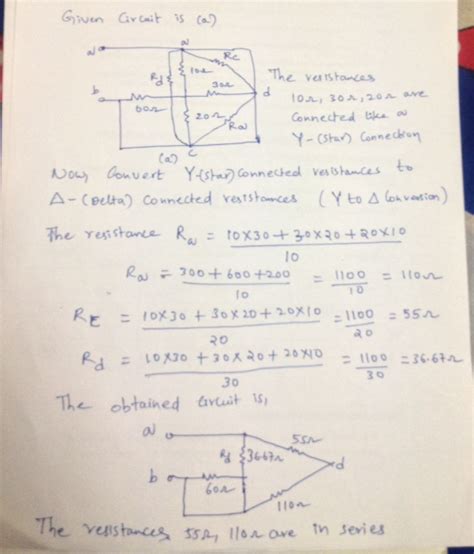 Given Circuit is (a)
a
a
Rc
10Ω
Rd
30Ω
d
b
60Ω
20Ω
Ra
c
(a)
The resistances
10Ω, 30Ω, 20Ω are
connected like a
Y-(star) connection
Now, Convert Y-(star) connected resistances to
Δ-(Delta) connected resistances (Y to Δ Conversion)
The resistance Ra = 10X30 + 30X20 + 20X10 / 10
Ra = 300 + 600 + 200 / 10 = 1100 / 10 = 110Ω
Rc = 10X30 + 30X20 + 20X10 / 20 = 1100 / 20 = 55Ω
Rd = 10X30 + 30X20 + 20X10 / 30 = 1100 / 30 = 36.67Ω
The obtained circuit is,
a
55Ω
Rd 36.67Ω
d
b
60Ω
110Ω
The resistances 55Ω, 110Ω are in series